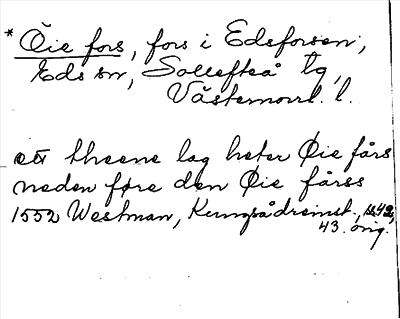 * Öie fors, fors i Edsforsen;
Eds sn, Sollefteå tg,
Västernorrl. l.
ett theene lag heter Øie fårs
neden føre den Øie fårss
1552 Westman, Kungsådreinst., s. 42,
43. orig.